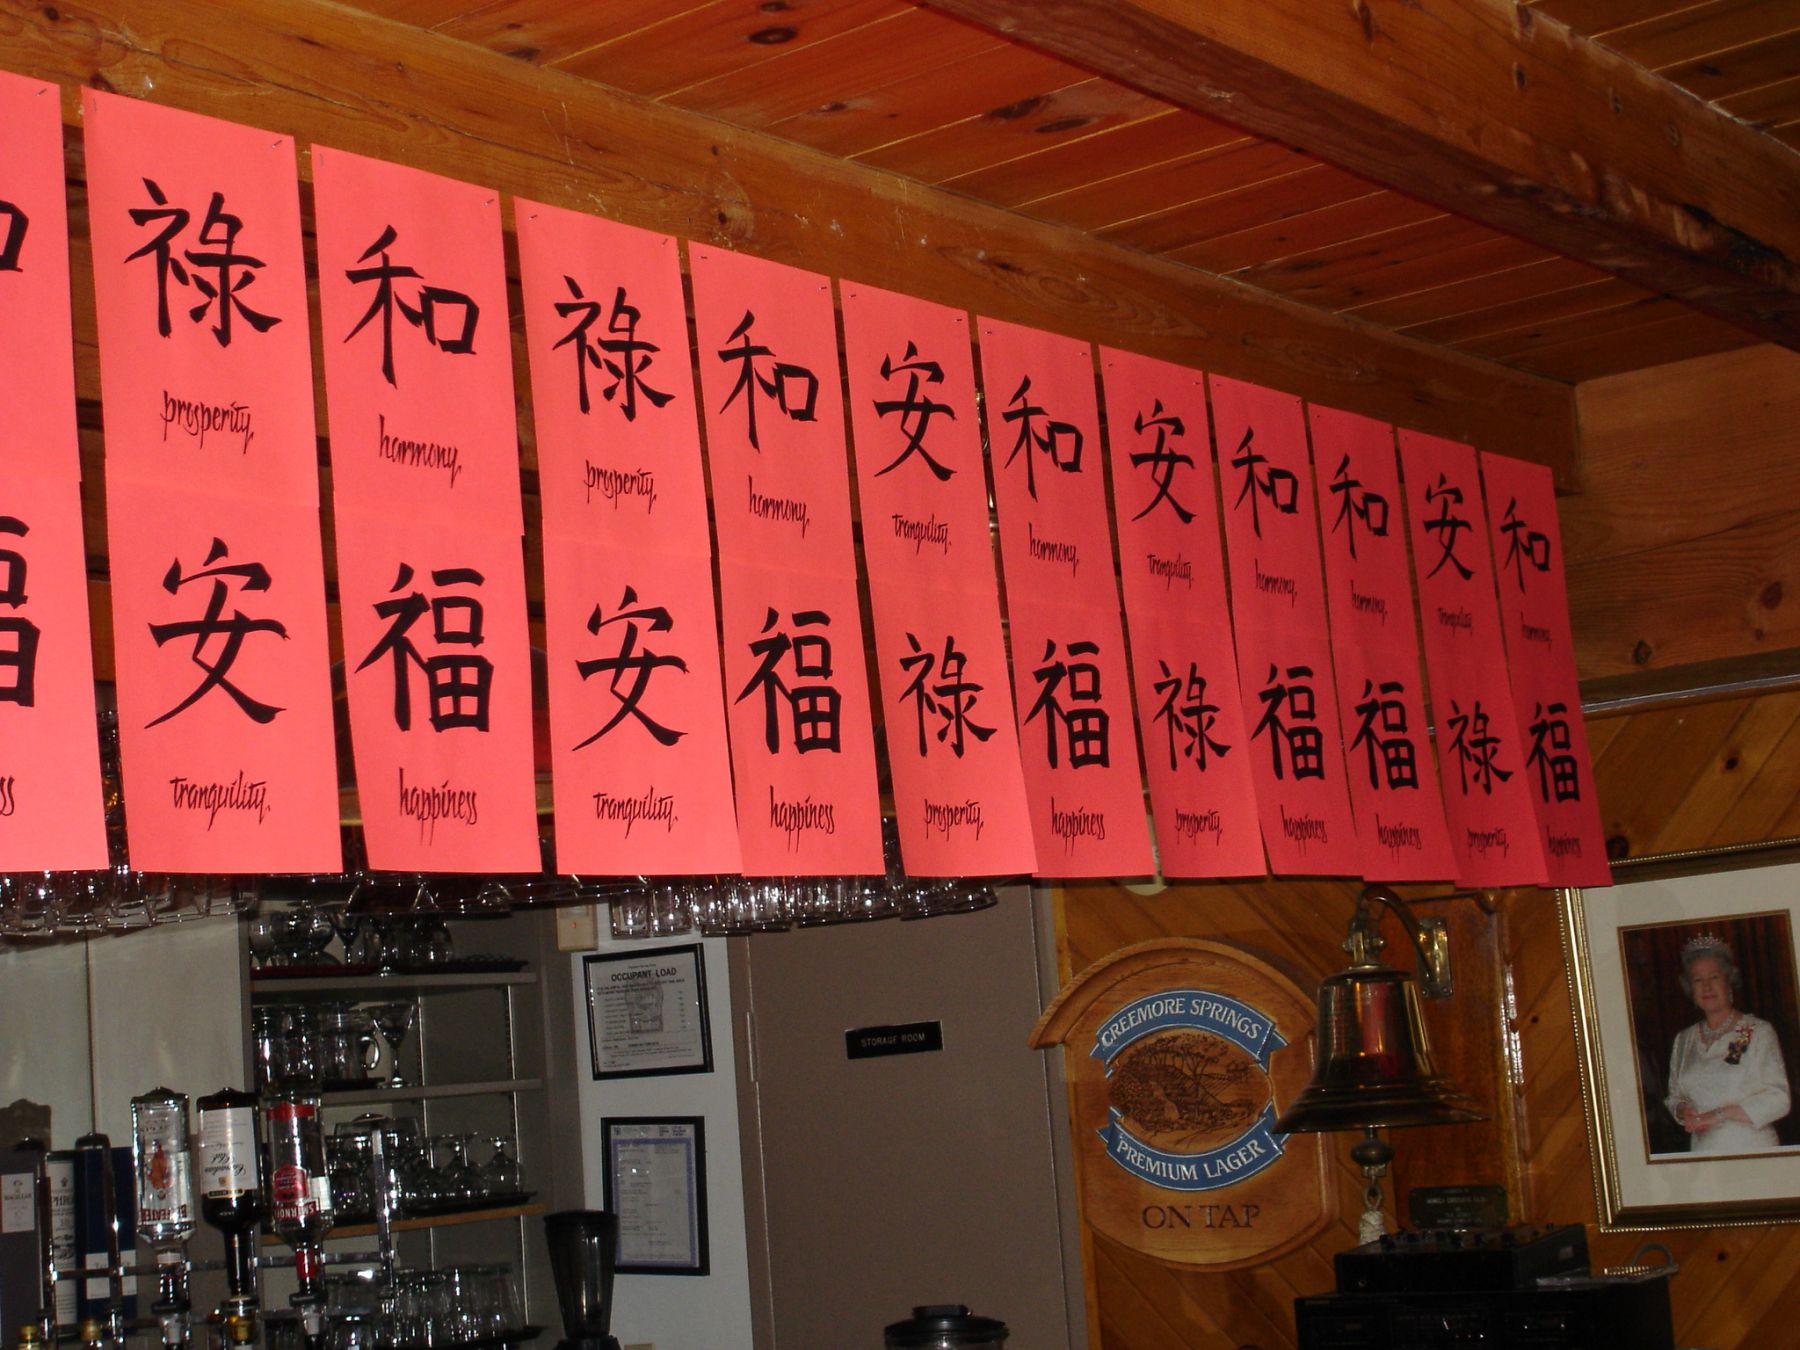 和
祿
prosperity
和
harmony
祿
prosperity
和
harmony
安
tranquility
和
harmony
安
tranquility
和
harmony
和
harmony
安
tranquility
和
harmony
福
ss
安
tranquility
福
happiness
安
tranquility
福
happiness
祿
prosperity
福
happiness
祿
prosperity
福
happiness
福
happiness
祿
prosperity
福
happiness
OCCUPANT LOAD
STORAGE ROOM
CREEMORE SPRINGS
PREMIUM LAGER
ON TAP
MACALLAN
BEEFEATER
Canadian
Club
SMIRNOFF